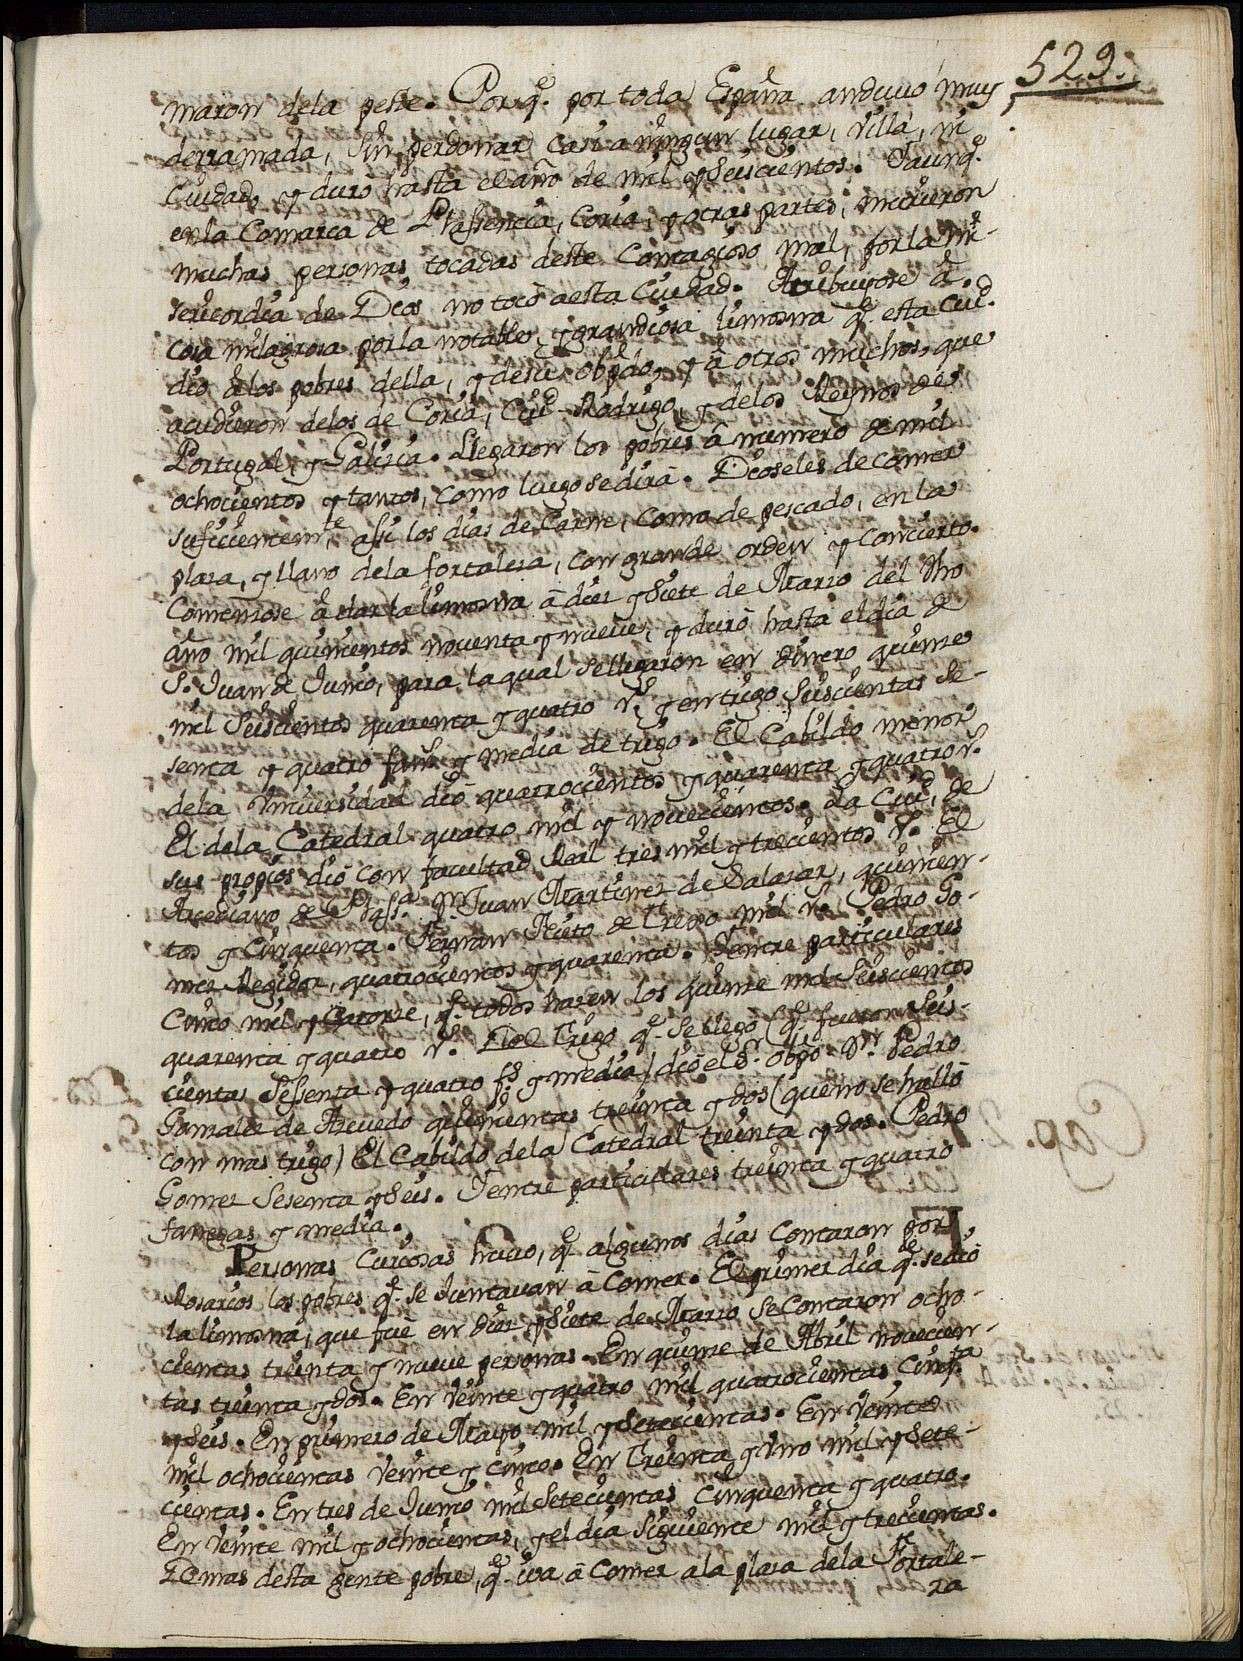 529.
maron dela peste. Porq.e por toda España anduuo muy
derramada, sin perdonar casi a ningun lugar, villa, ni
Ciudad, y duro hasta el año de mil y seiscientos. Iaunq.e
en la Comarca de Plassencia, Coria, y otras partes, murieron
muchas personas tocadas deste Contagioso mal, por la mi-
sericordia de Dios no tocò a esta Ciudad. Atribuyose à
cosa milagrosa por la notable, y grandiosa limosna q.e esta Ciu.d
dio à los pobres della, y de su obp.do y à otros muchos, que
acudieron delos de Coria, Ciu.d Rodrigo, y delos Reynos de
Portugal, y Galicia. Llegaron los pobres à numero de mil
ochocientos y tantos, como luego se dirà. Dioseles de comer
suficientem.te, assi los dias de Carne, como de pescado, en la
plaza, y llano dela fortaleza, con grande orden y Concierto.
Comenzose à dar la limosna à diez y siete de Marzo del dho
año mil quinientos noventa y nueve, y durò hasta el dia de
S. Iuan de Iunio, para la qual se llegaron en dinero quinze
mil seiscientos quarenta y quatro r.s y en trigo seiscientas se-
senta y quatro fan.s y media de trigo. El Cabildo menor
dela Vniversidad diò quatrocientos y quarenta y quatro r.s
El dela Catedral quatro mil y novecientos. La Ciu.d, de
sus propios diò con facultad Real tres mil y trecientos r.s El
Arcediano de Plass.a D.n Iuan Martinez de Salazar, quinien-
tos y cinquenta. Fernan Nieto de Trejo mil r.s Pedro Go-
mez Regidor, quatrocientos y quarenta. Ientre particulares
Cinco mil y catorze, q.e todos hazen los quinze mil seiscientos
quarenta y quatro r.s Del Trigo q.e se llegò (q.e fueron seis-
cientas sessenta y quatro f.s y media) diò el S.r obpo D.n Pedro
Gonzalez de Azeuedo quinientas treinta y dos (que no se hallò
con mas trigo) El Cabildo dela Catedral treinta y dos. Pedro
Gomez sesenta y seis. Ientre particulares treinta y quatro
fanegas y media.
Personas Curiosas huuo, q.e algunos dias contaron por
Rosarios los pobres q.e se Iuntauan à Comer. El primer dia q.e se diò
la limosna, que fuè en diez y siete de Marzo se Contaron ocho-
cientas treinta y nueve personas. En quinze de Abril novecien-
tas treinta y dos. En veinte y quatro mil quatrocientas cinq.ta
y seis. En primero de Mayo mil y setecientas. En veinte
mil ochocientas veinte y cinco. En Treinta y vno mil y sete-
cientas. En tres de Iunio mil setecientas cinquenta y quatro.
En veinte mil y ochocientas, y el dia siguiente mil y trecientas.
Demas desta gente pobre, q.e iva à Comer a la plaza dela Fortale-
za